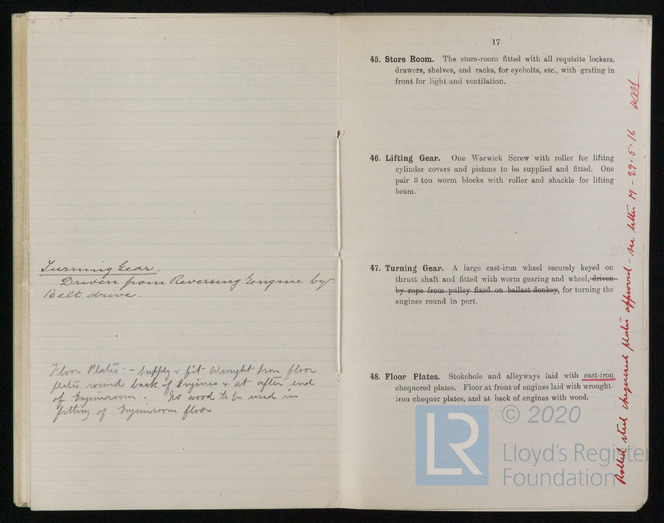 Turning Gear.
Driven from Reversing Engine by
Belt drive.
Floor Plates - Supply & fit Wrought Iron floor
plates round back of Engines & at after end
of Engineroom. No wood to be used in
fitting of Engineroom floor
17
45. Store Room. The store-room fitted with all requisite lockers,
drawers, shelves, and racks, for eyebolts, etc., with grating in
front for light and ventilation.
46. Lifting Gear. One Warwick Screw with roller for lifting
cylinder covers and pistons to be supplied and fitted. One
pair 3 ton worm blocks with roller and shackle for lifting
beam.
47. Turning Gear. A large cast-iron wheel securely keyed on
thrust shaft and fitted with worm gearing and wheel, driven
by rope from pulley fixed on ballast donkey, for turning the
engines round in port.
48. Floor Plates. Stokehole and alleyways laid with cast-iron
chequered plates. Floor at front of engines laid with wrought-
iron chequer plates, and at back of engines with wood.
Rolled steel chequered plates approved - see letter M - 29.5.16
© 2020
LR
Lloyd's Register
Foundation